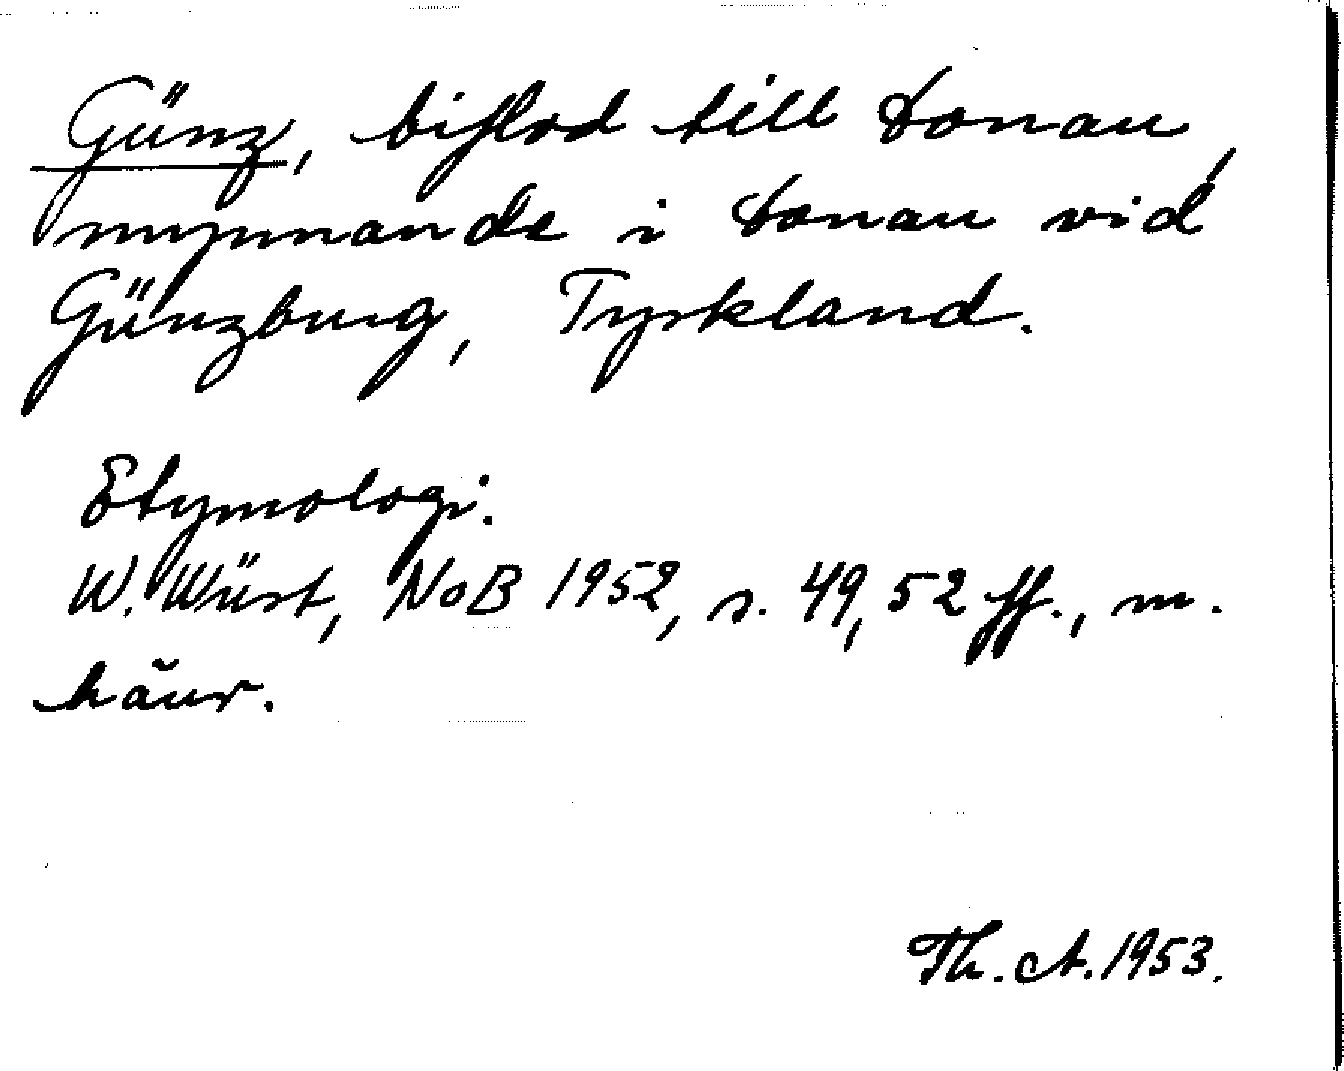 Günz, biflod till Donau,
mynnande i Donau vid
Günzburg, Tyskland.
Etymologi.
W. Wüst, NoB 1952, s. 49, 52 ff., m.
hänv.
Th. A. 1953.